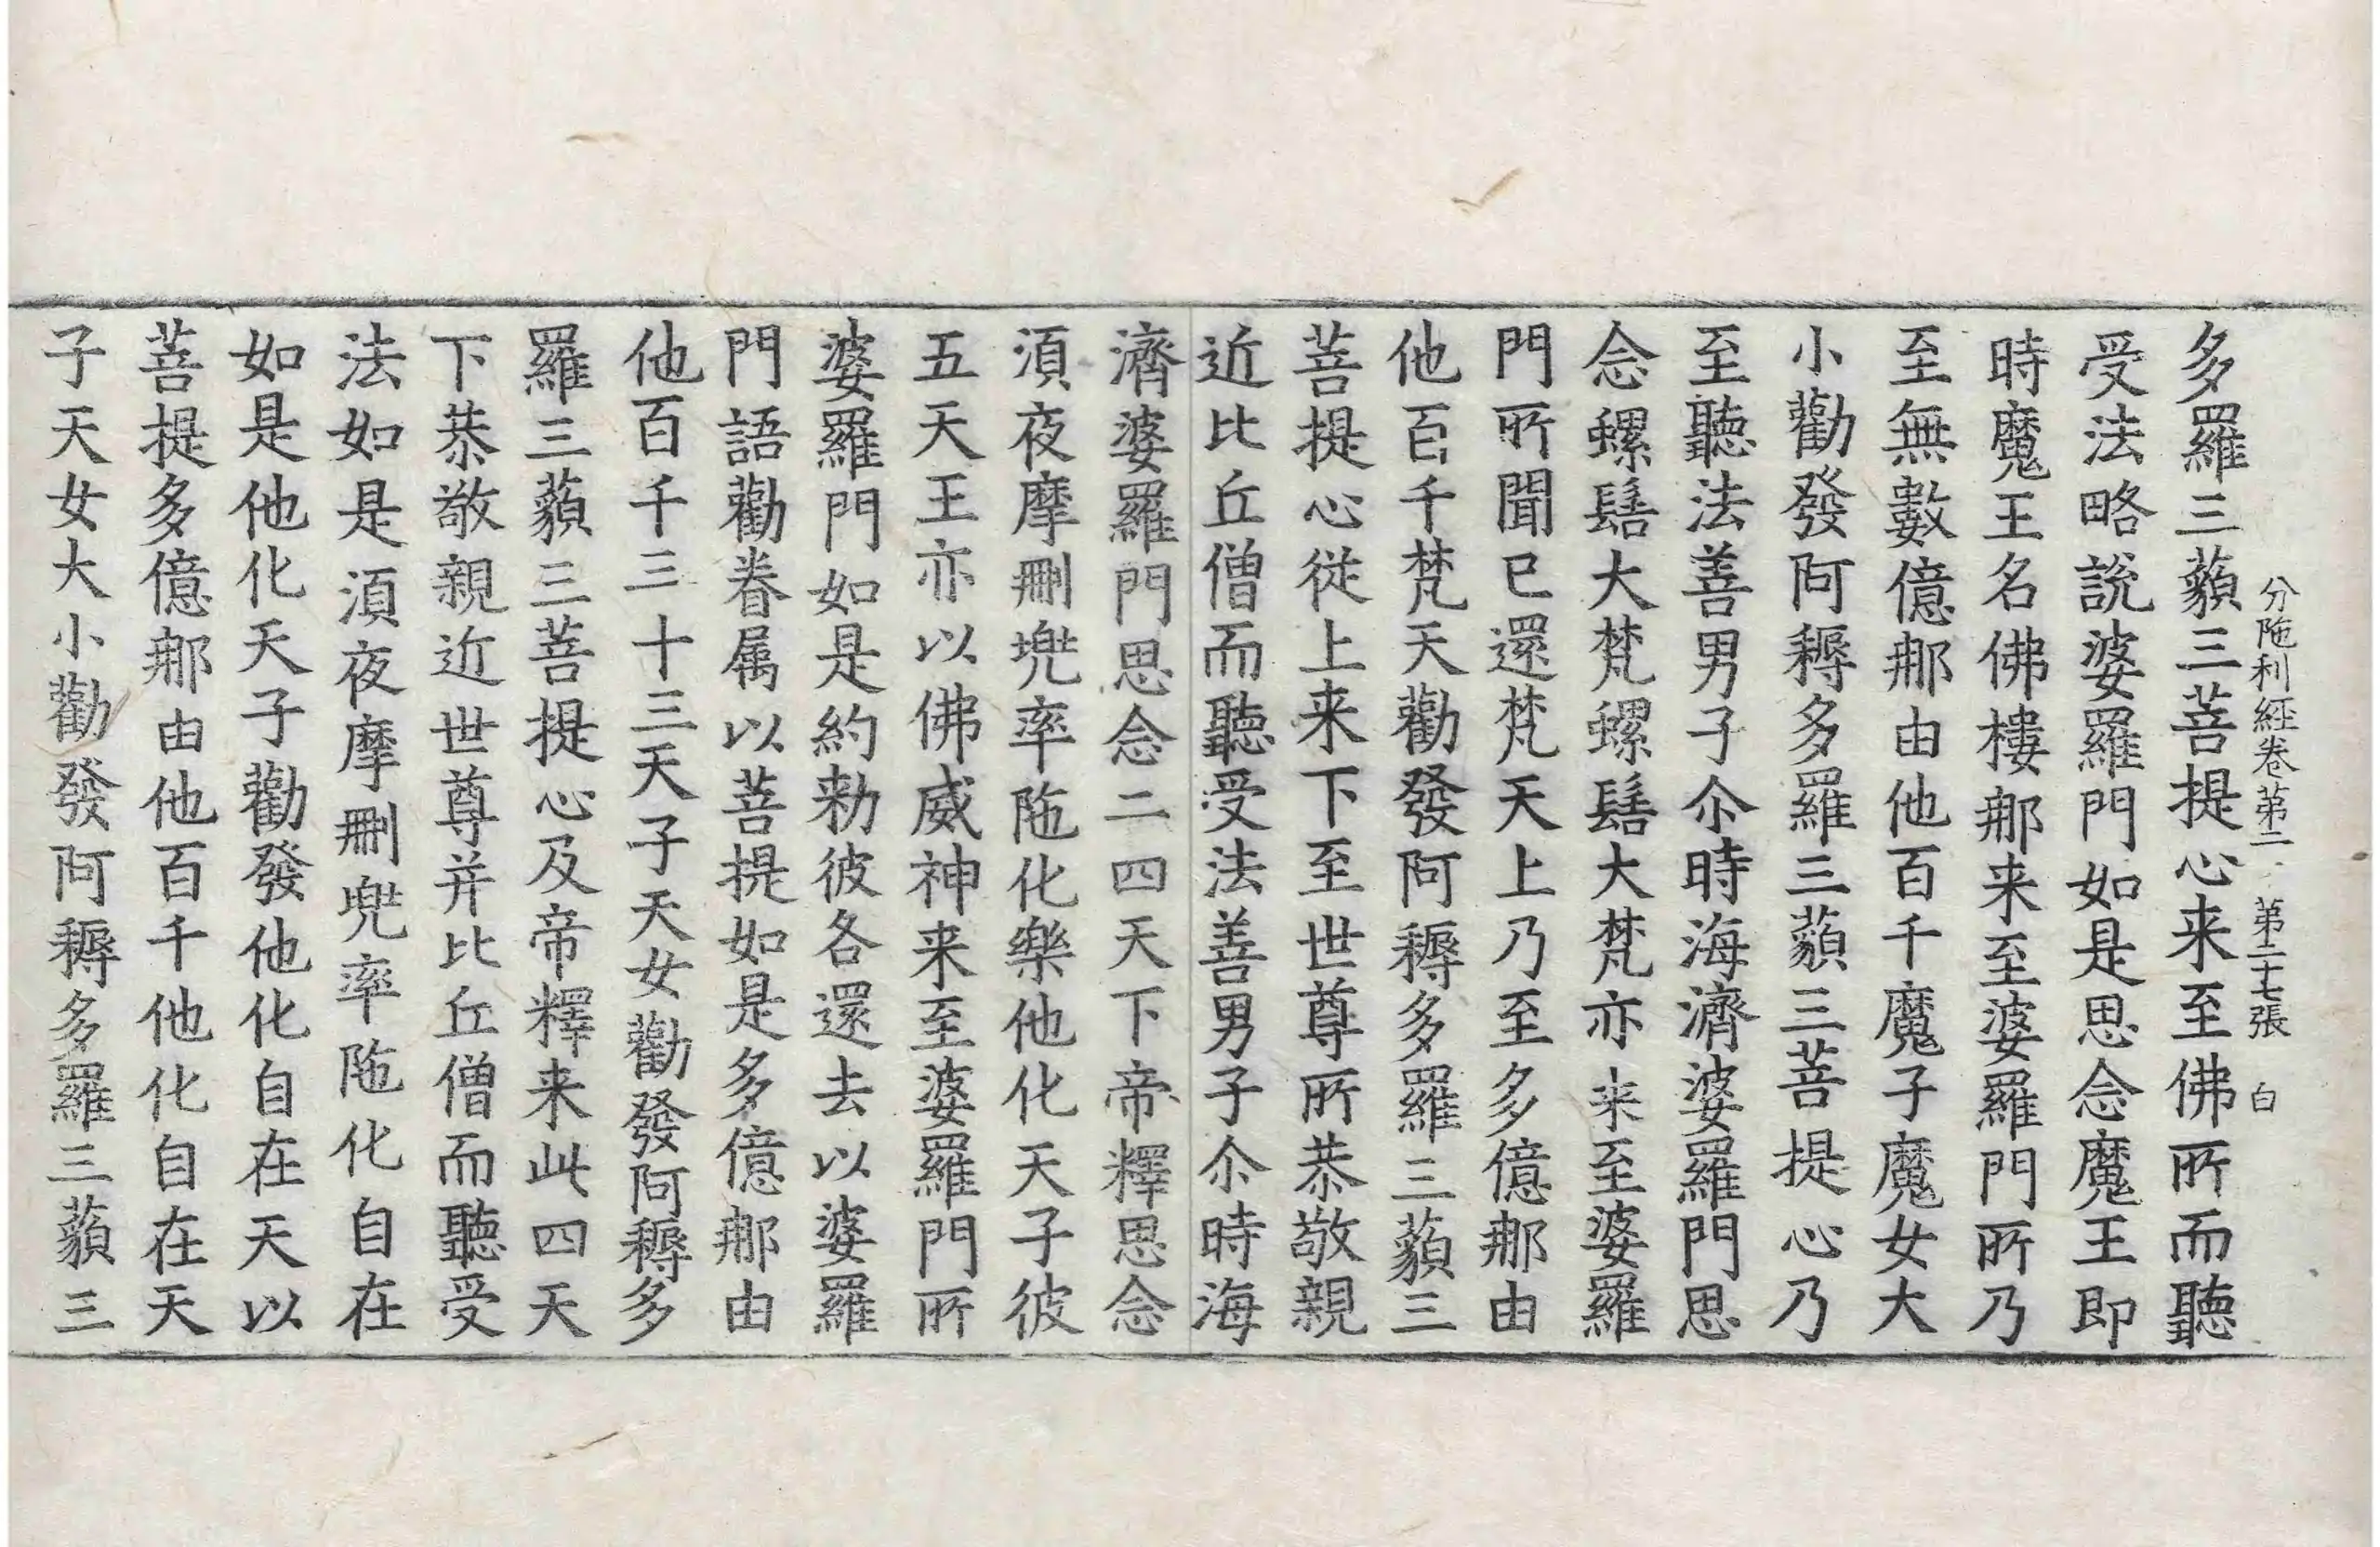 分陁利經卷第二 第二十七張 白
多羅三藐三菩提心来至佛所而聽
受法略說婆羅門如是思念魔王即
時魔王名佛樓那来至婆羅門所乃
至無數億那由他百千魔子魔女大
小勸發阿耨多羅三藐三菩提心乃
至聽法善男子尒時海濟婆羅門思
念螺髻大梵螺髻大梵亦来至婆羅
門所聞已還梵天上乃至多億那由
他百千梵天勸發阿耨多羅三藐三
菩提心從上来下至世尊所恭敬親
近比丘僧而聽受法善男子尒時海
濟婆羅門思念二四天下帝釋思念
湏夜摩刪兠率陁化樂他化天子彼
五天王亦以佛威神来至婆羅門所
婆羅門如是約勑彼各還去以婆羅
門語勸眷属以菩提如是多億那由
他百千三十三天子天女勸發阿耨多
羅三藐三菩提心及帝釋来此四天
下恭敬親近世尊并比丘僧而聽受
法如是湏夜摩刪兠率陁化自在
如是他化天子勸發他化自在天以
菩提多億那由他百千他化自在天
子天女大小勸發阿耨多羅三藐三